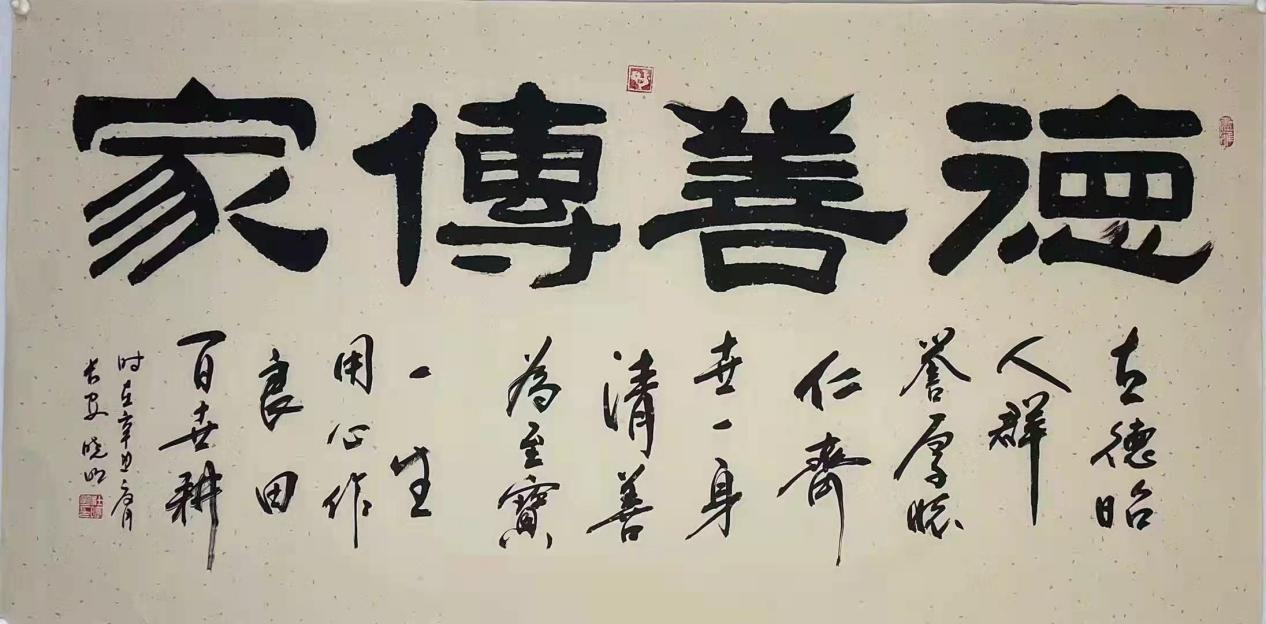 德善傳家
立德昭
人群
誉厚聪
仁齊
世一身
清善
為至寶
一生
用心作
良田
百世耕
时在辛丑 月
长安 晓明